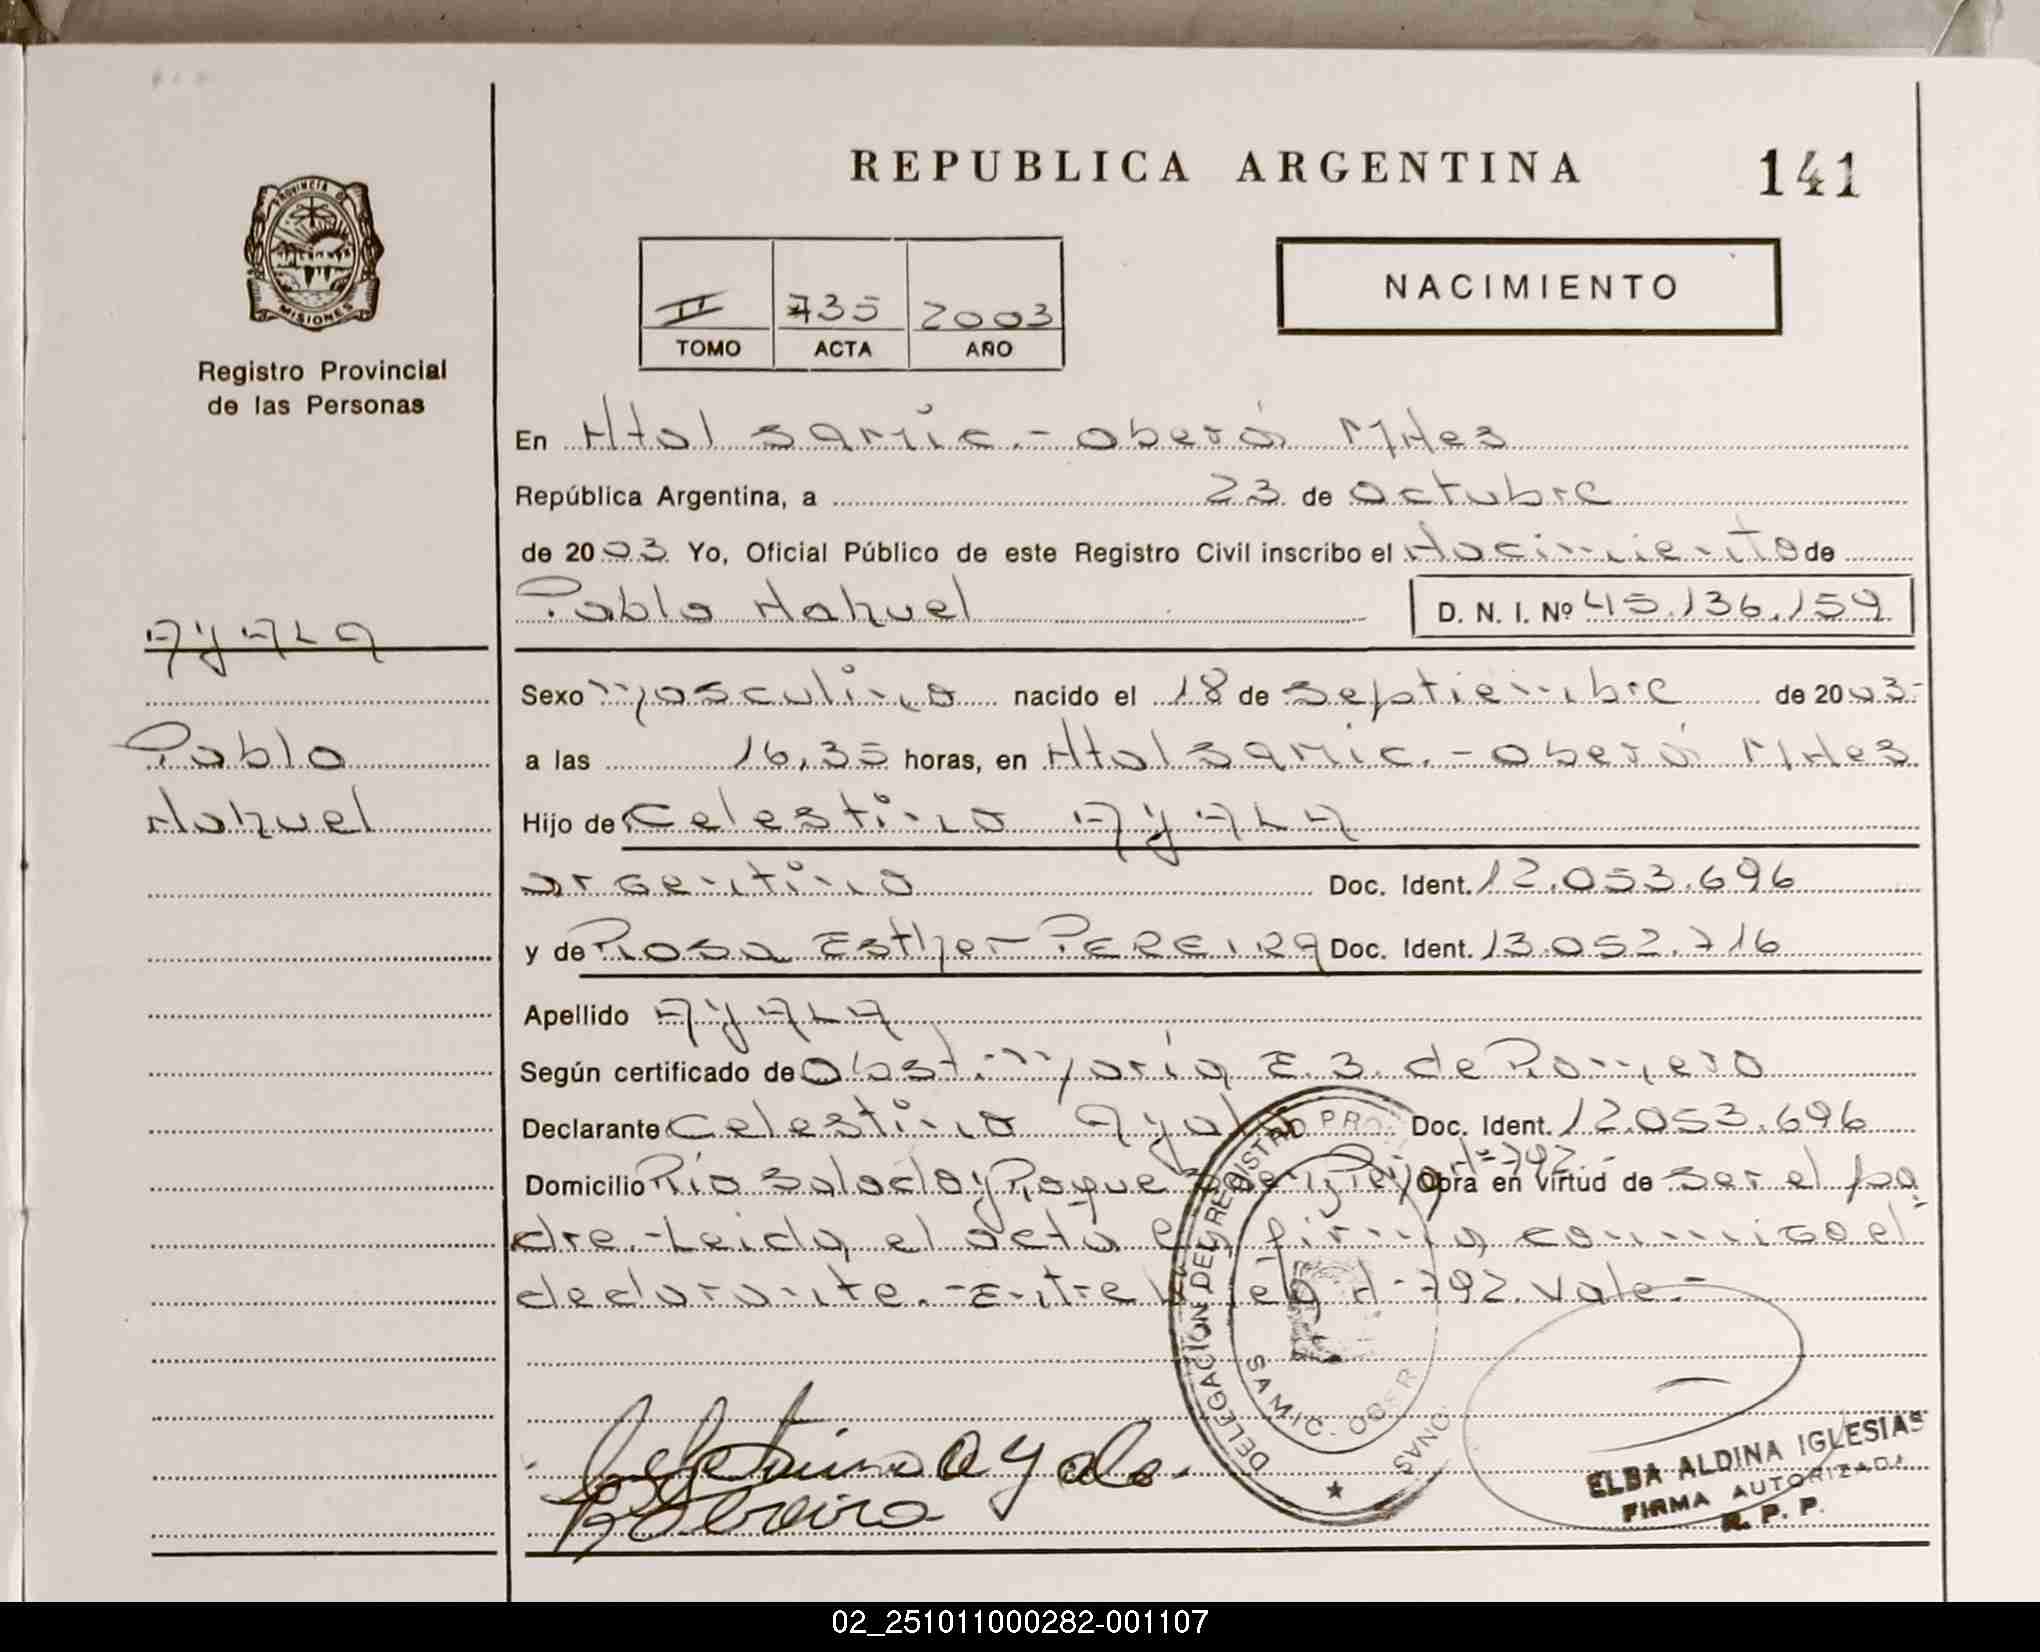 REPUBLICA ARGENTINA
141
PROVINCIA DE
MISIONES
Registro Provincial
de las Personas
II 735 2003
TOMO ACTA AÑO
NACIMIENTO
En Htal SAMIC.- Oberá Mnes
República Argentina, a 23 de Octubre
de 2003 Yo, Oficial Público de este Registro Civil inscribo el Nacimiento de
Pablo Nahuel D. N. I. Nº 45.136.159
AYALA
Pablo
Nahuel
Sexo Masculino nacido el 18 de Septiembre de 2003-
a las 16,35 horas, en Htal SAMIC.- Oberá Mnes
Hijo de Celestino AYALA
argentino Doc. Ident. 12.053.696
y de Rosa Esther PEREIRA Doc. Ident. 13.052.716
Apellido AYALA
Según certificado de Obst. María E. B. de Romero
Declarante Celestino Ayala Doc. Ident. 12.053.696
Nº 792.-
Domicilio Río Salado y Roque Obra en virtud de ser el pa
dre.- Leida el acta la firma conmigo el
declarante.- Entre N-792. Vale.-
DELEGACIÓN DEL REGISTRO PRO
SAMIC. OBER
Celestino Ayala.
R Pereira
ELBA ALDINA IGLESIAS
FIRMA AUTORIZADA
R. P. P.
02_251011000282-001107